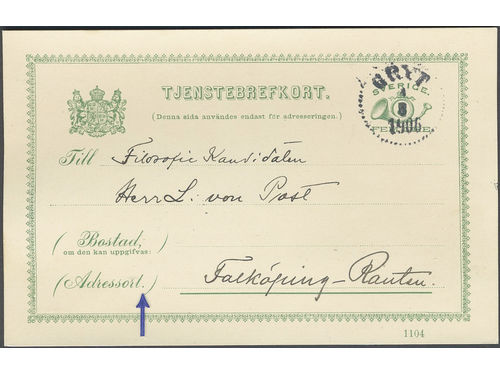 TJENSTEBREFKORT.
(Denna sida användes endast för adresseringen.)
GRYT
SVERIGE.
4
8
1906
FEM ÖRE
Till Filosofie Kandidaten
Herr L. von Post
(Bostad,
om den kan uppgifvas:)
(Adressort.) Falköping-Ranten.
1104